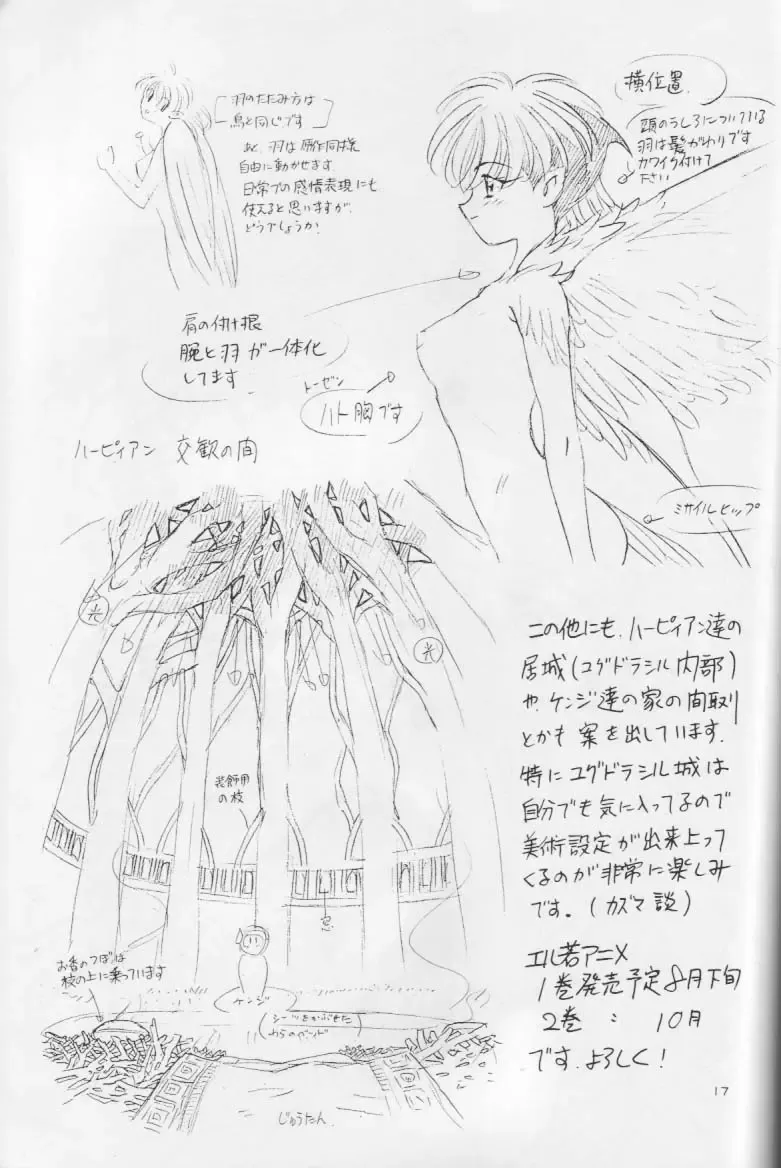 羽のたたみ方は
鳥と同じです
あと、羽は原作同様
自由に動かせます
日常での感情表現にも
使えると思いますが
どうでしょうか?
横位置
頭のうしろについている
羽は髪がわりです
カワイク付けて
下さい
肩の付け根
腕と羽が一体化
してます
トーゼン
ハト胸です
ミサイルヒップ
ハーピィアン 交歓の間
光
光
装飾用
の枝
お香のつぼは
枝の上に乗っています
ケンジ
(シーツをかぶせた
わらのベッド)
じゅうたん
この他にも、ハーピィアン達の
居城(ユグドラシル内部)
や、ケンジ達の家の間取り
とかも案を出しています.
特にユグドラシル城は
自分でも気に入ってるので
美術設定が出来上って
くるのが非常に楽しみ
です。(カズマ談)
エル若アニメ
1巻発売予定8月下旬
2巻 : 10月
です.よろしく!
17